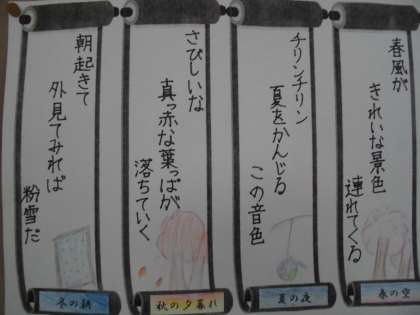 春風が
きれいな景色
連れてくる
春の空
チリンチリン
夏をかんじる
この音色
夏の夜
さびしいな
真っ赤な葉っぱが
落ちていく
秋の夕暮れ
朝起きて
外見てみれば
粉雪だ
冬の朝